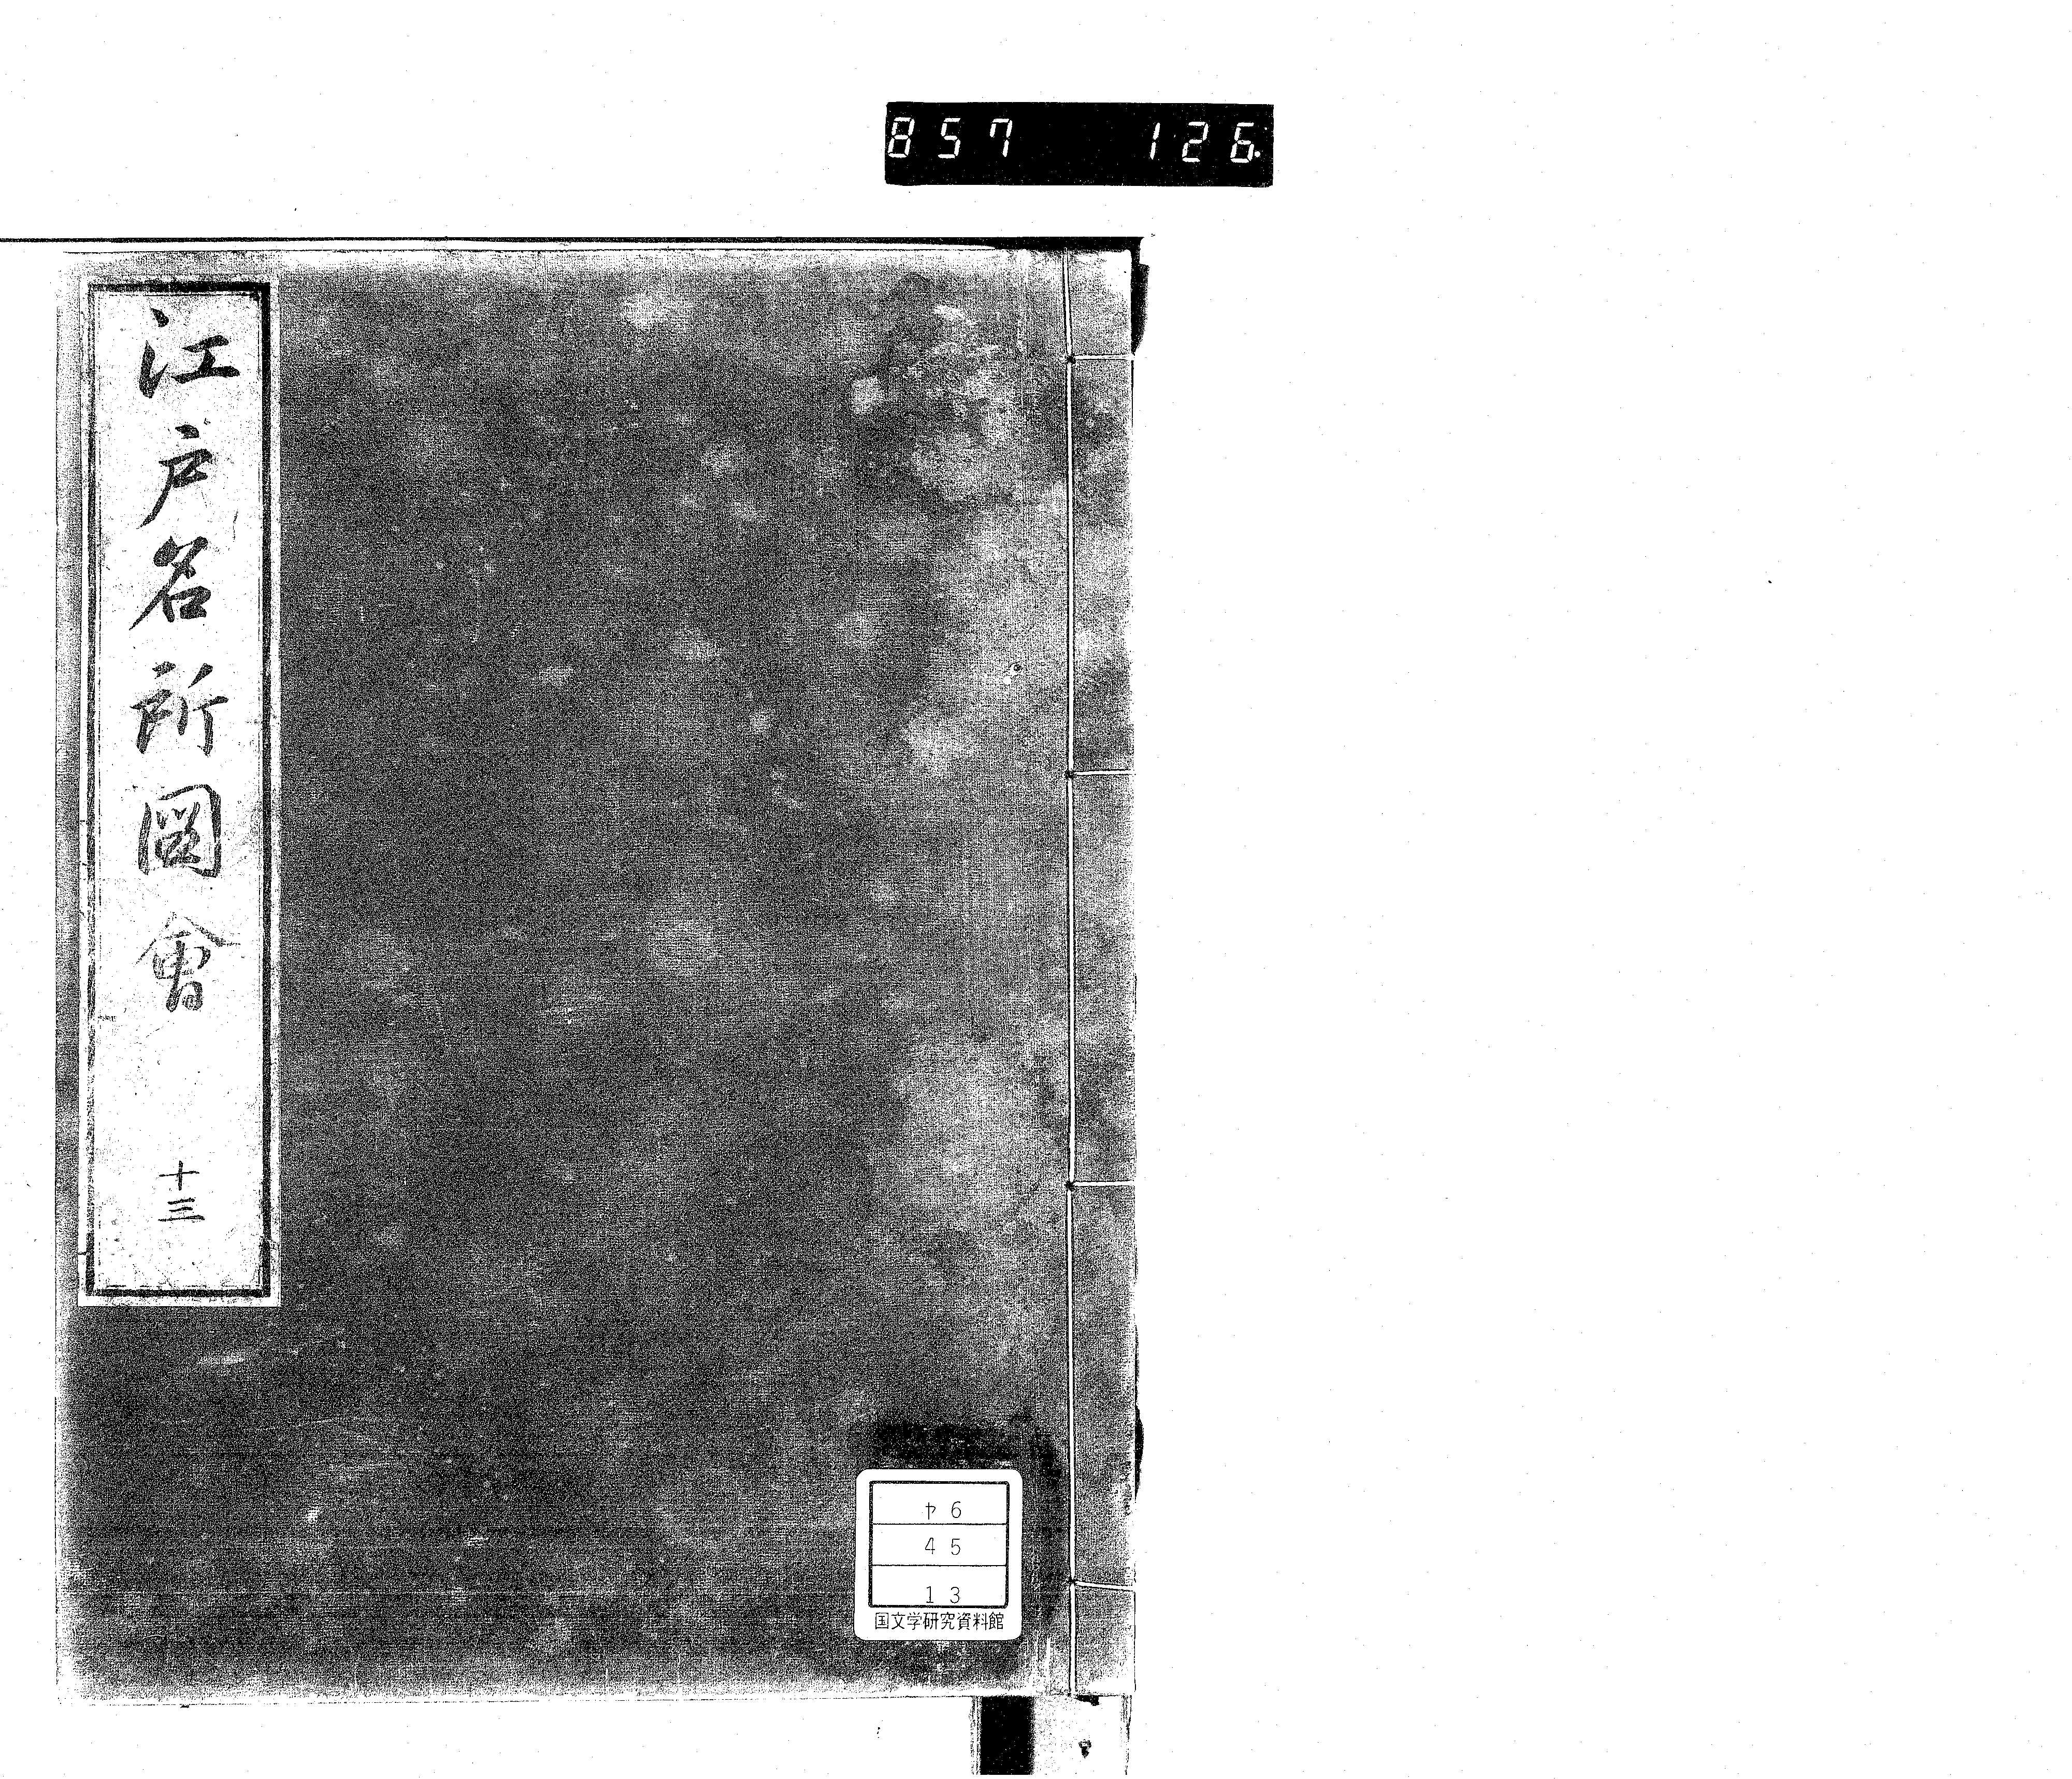 857 126
江戸名所圖會
十三
ヤ6
45
13
国文学研究資料館